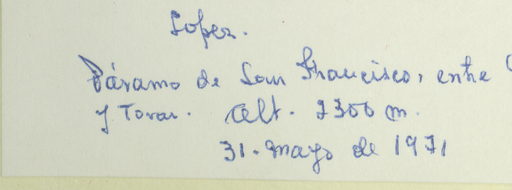 Lopez.
Páramo de San Francisco, entre
y Tovar. Alt. 2300 m.
31-mayo de 1971